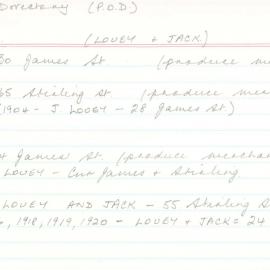 Directory (P.O.D)
(LOVEY & JACK)
30 James St. (produce me
65 Stirling St. (produce me
(1904 - J LOVEY - 28 James St.)
James St. (produce merchan
LOVEY - Cnr James & Stirling
LOVEY AND JACK - 55 Stirling S
1918, 1919, 1920 - LOVEY & JACK = 24